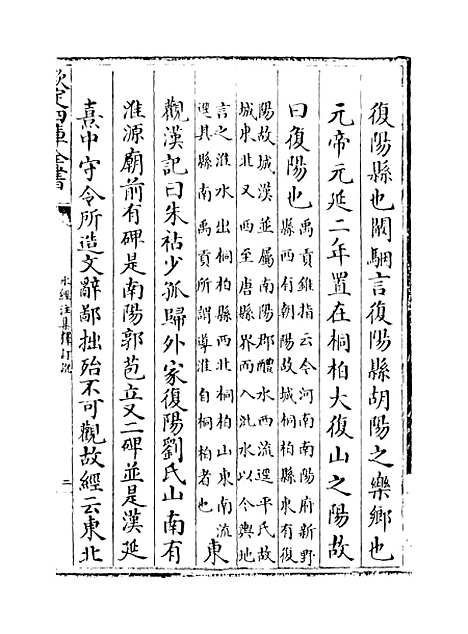 復陽縣也闞駰言復陽縣胡陽之樂鄉也
元帝元延二年置在桐柏大復山之陽故
曰復陽也
禹貢錐指云今河南南陽府新野
縣西有朝陽故城桐柏縣東有復
陽故城漢並屬南陽郡醴水西流逕平氏故
城東北又西至唐縣界而入泚水以今輿地
言之淮水出桐柏縣西北桐柏山東南流
逕其縣南禹貢所謂導淮自桐柏者也
東
觀漢記曰朱祜少孤歸外家復陽劉氏山南有
淮源廟前有碑是南陽郭苞立又二碑並是漢延
熹中守令所造文辭鄙拙殆不可觀故經云東北
欽定四庫全書
水經注集釋訂訛
二